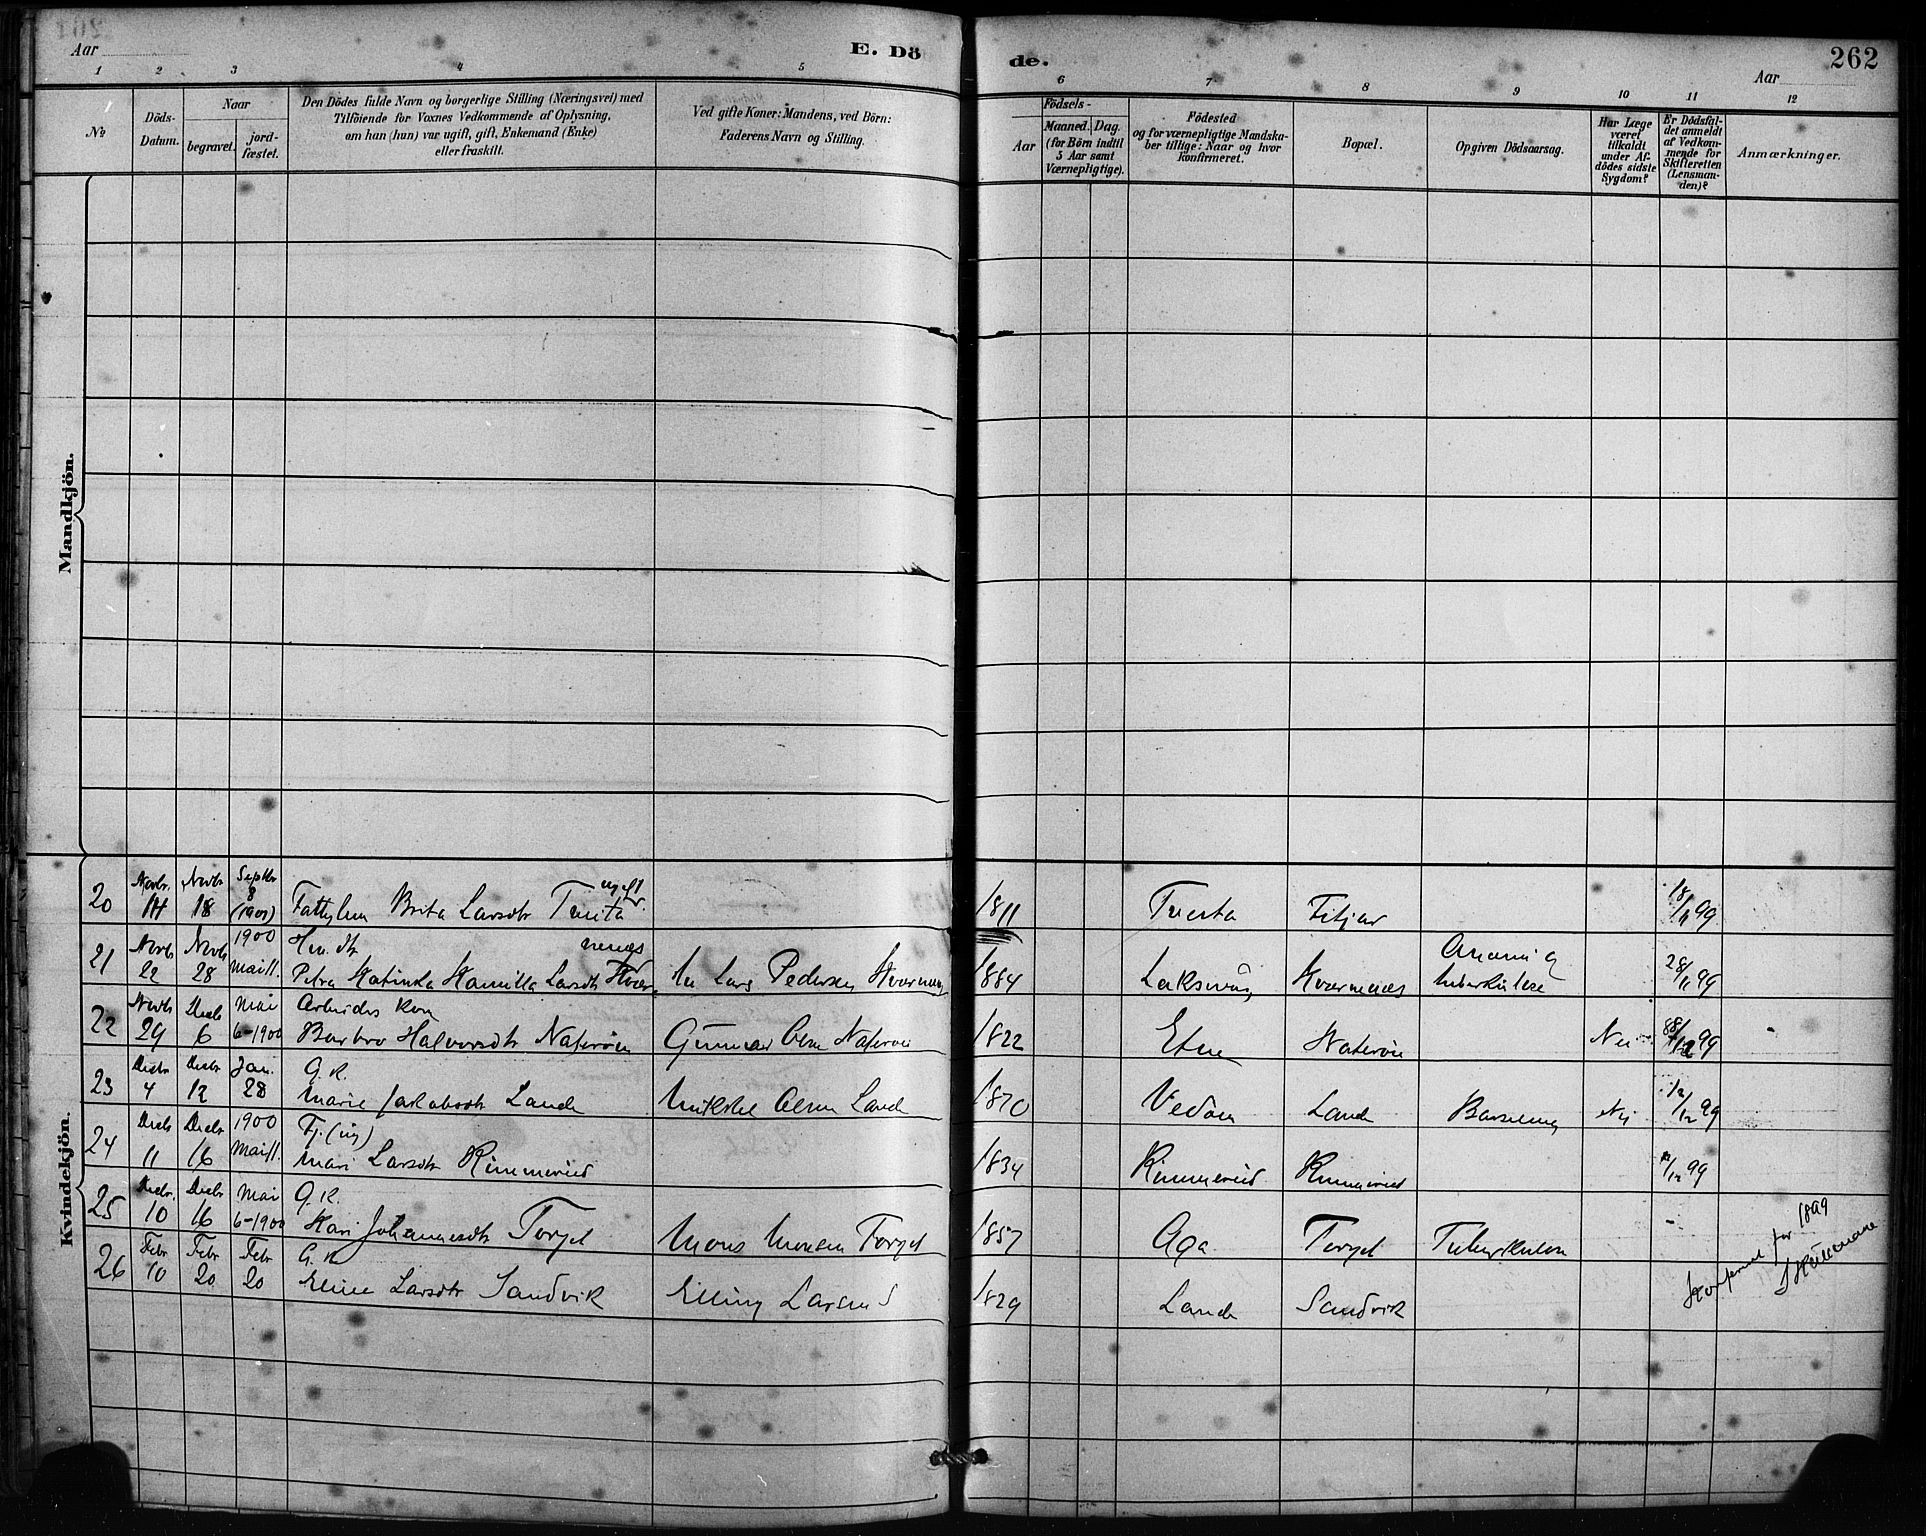 Aar
E. Dö
1 2 3 4 5
No
Döds-
Datum.
Naar
begravet.
jord-
fæstet.
Den Dödes fulde Navn og borgerlige Stilling (Næringsvei) med
Tilföiende for Voxnes Vedkommende af Oplysning,
om han (hun) var ugift, gift, Enkemand (Enke)
eller fraskilt.
Ved gifte Koner: Mandens, ved Börn:
Faderens Navn og Stilling.
Mandkjön.
Kvindekjön.
de.
Aar
262
6 7 8 9 10 11 12
Aar
Födsels-
Maaned. Dag.
(for Börn indtil
5 Aar samt
Værnepligtige).
Födested
og for værnepligtige Mandska-
ber tillige: Naar og hvor
konfirmeret.
Bopæl.
Opgiven Dödsaarsag.
Har Læge
været
tilkaldt
under Af-
dödes sidste
Sygdom?
Er Dödsfal-
det anmeldt
af Vedkom-
mende for
Skifteretten
(Lensman-
den)?
Anmærkninger.
20 Novbr. 14 Novbr 18 Septbr 8 ugift
Brita Larsdtr 1811 Fitjar 18/11 99
21 Novbr 22 Novbr 28 1900 Mai 11.
Petra Katinka Kamilla Larsdtr Lars Pedersen Kvernenes 1884 Laksevåg Kvernenes 28/11 99
22 Novbr 29 Decbr 6 Mai 6-1900 Arbeiders Kone
Barbro Halvorsdtr Naterøen Gunnar Olsen Naterøen 1822 Etne Naterøen Nei 12 99
23 Decbr 4 Decbr 12 Jan. 28 G. K.
Marie Jakobsdtr Lande Mikkel Olsen Lande 1870 Lande Nei 12/12 99
24 Decbr 11 Decbr 16 1900 Mai 11. Fj. (ug)
Mari Larsdtr Rimmereid 1834 Rimmereid Rimmereid 12 99
25 Decbr. 10 Decbr 16 Mai 6-1900 G. K.
Kari Johannesdtr Mons Monsen 1857 Aga
26 Febr 10 Febr 20 Febr 20 G. K.
Eline Larsdtr Sandvik Elling Larsen S 1829 Lande Sandvik
for 1899